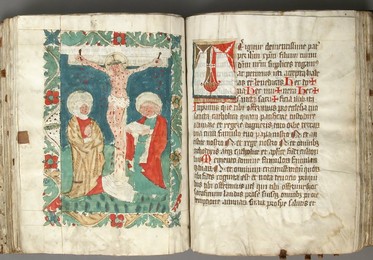 T E igitur clementissime pat
per ihm xpm filium tuum
dnm nrm supplices rogam
ac petimus uti accepta habe
as et benedicas Hec do✠
na Hec mu✠nera hec ✠
sancta sacri✠ficia illibata
In primis que tibi offerimus pro ecclesia tua
sancta catholica quam pacificare custodire
adunare et regere digneris toto orbe terrarum
una cum famulo tuo papa nostro N et
nostro N et rege nostro N et omnibus
atque catholice et apostolice fidei
Memento domine famulorum famularum
tuarum N et omnium quorum tibi
fides cognita est et nota devotio pro qui
bus tibi offerimus vel qui tibi offerunt hoc
sacrificium laudis pro se suisque omnibus pro re
animarum suarum pro spe salutis et